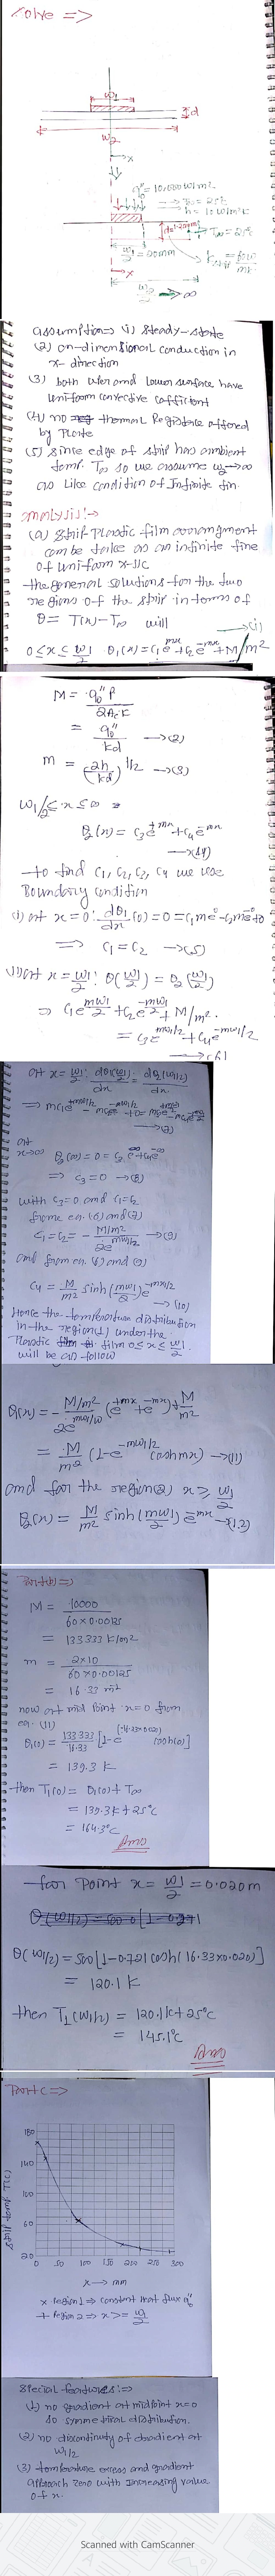 Solve =>
w1
d
w2
→x
q0" = 10,000 W/m²
T∞ = 25°C
h = 10 W/m²K
d = 1.25mm
T∞ = 25°C
w1/2 = 20mm
→x
w2/2 → ∞
assumption => (1) Steady-state
(2) on-dimensional conduction in
x-direction
(3) both upper and lower surface have
uniform convective cofficient
(4) no thermal Registance offered
by Plate
(5) Since edge of strip has ambient
temp. T∞ so we assume w2→∞
as like condition of Infinite fin.
Analysis:→
(a) Strip Plastic film arrangment
can be take as an infinite fine
of uniform x-s/c
the general solutions for the two
regions of the strip in terms of
θ = T(x) - T∞ will
→(1)
0≤x≤w1/2 θ1(x) = c1e^mx + c2e^-mx + M/m²
M = q0" P / 2AcK
= q0" / kd →(2)
m = (2h/kd)^1/2 →(3)
w1/2 ≤ x ≤ ∞
θ2(x) = c3e^mx + c4e^-mx
→(4)
to find c1, c2, c3, c4 we use
Boundary condition
(i) at x=0: dθ1/dx (0) = 0 = c1me^0 - c2me^-0 + 0
=> c1 = c2 →(5)
(ii) at x = w1/2: θ(w1/2) = θ2(w1/2)
=> c1e^mw1/2 + c2e^-mw1/2 + M/m²
= c3e^mw1/2 + c4e^-mw1/2
→(6)
at x = w1/2: dθ1(w1/2)/dx = dθ2(w1/2)/dx
=> mc1e^mw1/2 - mc2e^-mw1/2 + 0 = mc3e^mw1/2 - mc4e^-mw1/2
→(7)
at
x→∞ θ2(∞) = 0 = c3e^∞ + c4e^-∞
=> c3 = 0 →(8)
with c3=0 and c1=c2
frome en. (6) and (7)
c1 = c2 = - M/m² / 2e^mw1/2 →(9)
and from en. (6) and (9)
c4 = M/m² sinh(mw1/2)
→(10)
Hence the temperature distribution
in the region(1) under the
Plastic film 0≤x≤w1/2
will be as follow
θ1(x) = - M/m² / 2e^mw1/2 (e^mx + e^-mx) + M/m²
= M/m² (1 - e^-mw1/2 coshmx) →(11)
and for the region(2) x ≥ w1/2
θ2(x) = M/m² sinh(mw1/2) e^-mx →(12)
Part(b) =>
M = 10000 / 60 x 0.00125
= 133333 K/m²
m = 2x10 / 60 x 0.00125
= 16.33 m^-1
now at mid point x=0 from
en. (11)
θ1(0) = 133.333/16.33 [1 - e^(-16.33x0.020) cosh(0)]
= 139.3 K
then T1(0) = θ1(0) + T∞
= 139.3K + 25°C
= 164.3°C
Ans
for point x = w1/2 = 0.020m
θ(w1/2) = 500[1-0.721 cosh(16.33x0.020)]
= 120.1 K
then T1(w1/2) = 120.1K + 25°C
= 145.1°C
Ans
Part C =>
180
140
100
60
20
0 50 100 150 200 250 300
Strip temp. T(C)
x → mm
x region 1 => constant heat flux q0"
+ Region 2 => x >= w1/2
Special features: =>
(1) no gradient at midpoint x=0
so symmetrical distribution.
(2) no discontinuity of gradient at
w1/2
(3) temperature excess and gradient
approach zero with increasing value
of x.
Scanned with CamScanner